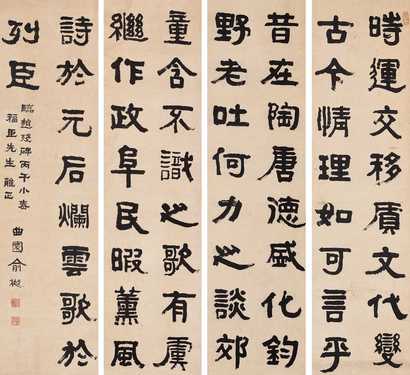 時運交移質文代變
古今情理如可言乎
昔在陶唐德盛化鈞
野老吐何力之談郊
童含不識之歌有虞
繼作政阜民暇薰風
詩於元后爛雲歌於
列臣
臨趙碑丙午小春
福臣先生雅正
曲園俞樾